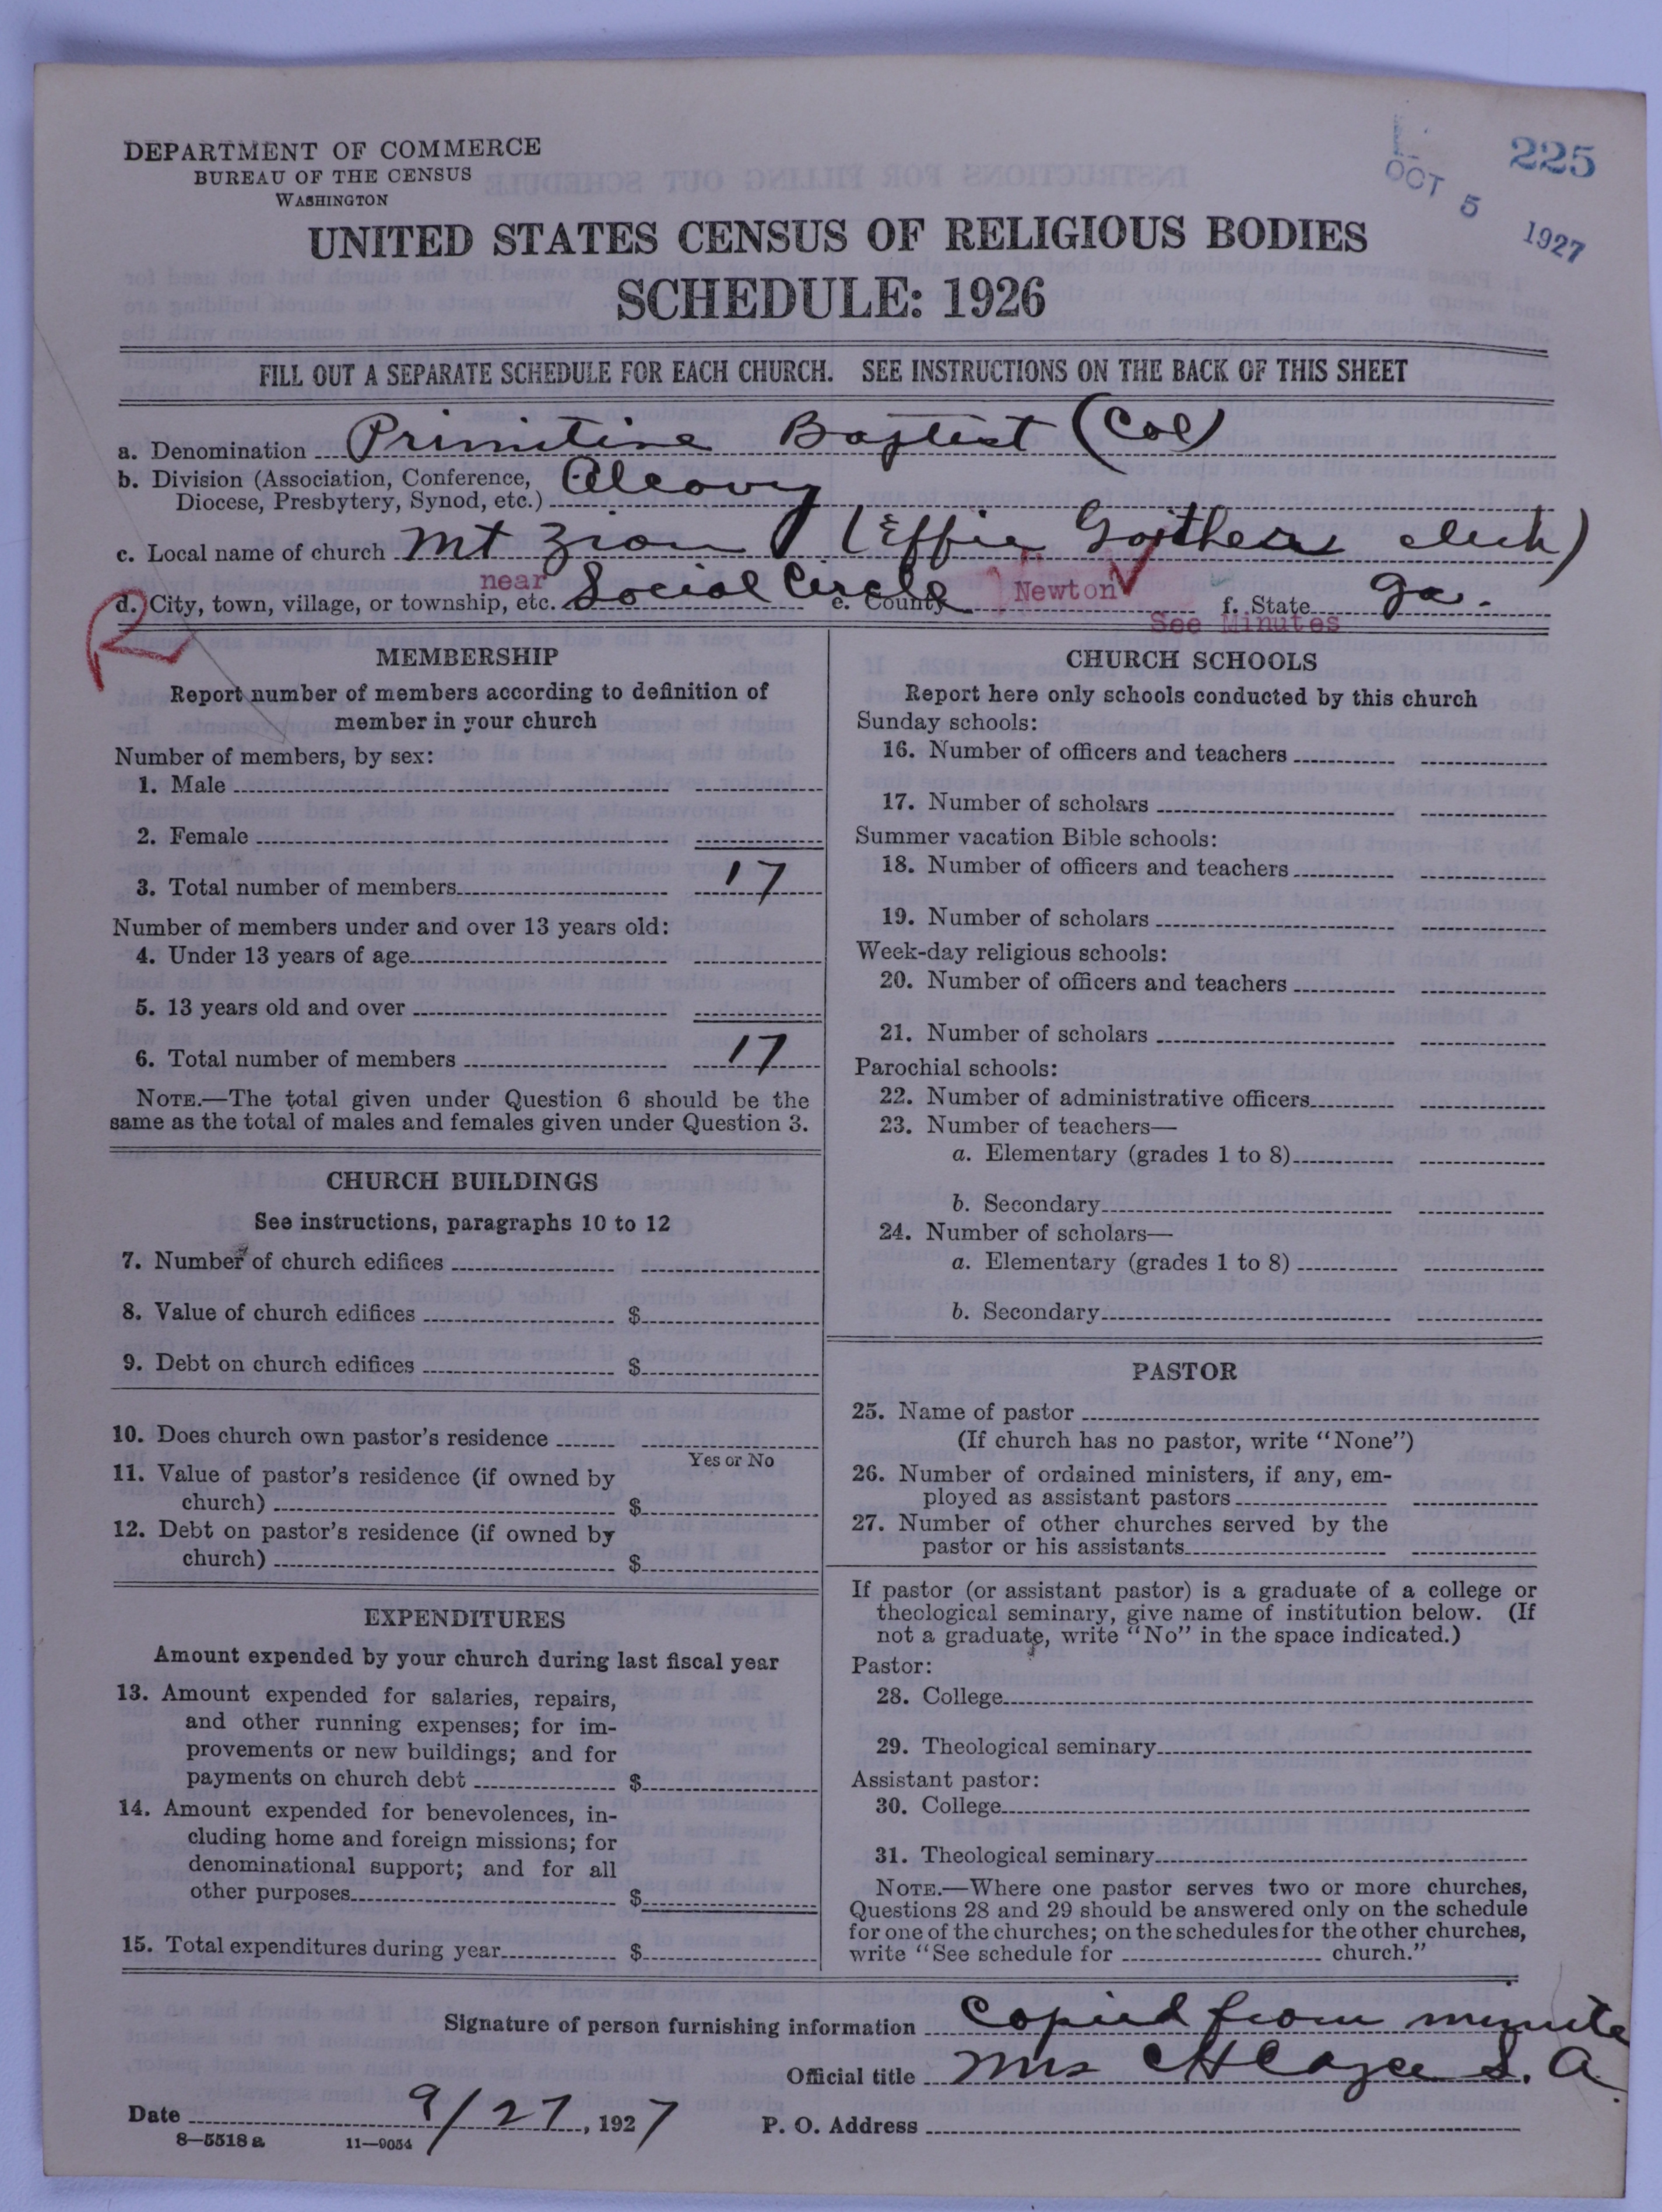 225
OCT 5 1927
DEPARTMENT OF COMMERCE
BUREAU OF THE CENSUS
WASHINGTON
UNITED STATES CENSUS OF RELIGIOUS BODIES
SCHEDULE: 1926
FILL OUT A SEPARATE SCHEDULE FOR EACH CHURCH. SEE INSTRUCTIONS ON THE BACK OF THIS SHEET
a. Denomination Primitive Baptist (Col)
b. Division (Association, Conference, Diocese, Presbytery, Synod, etc.) Alcovy
c. Local name of church Mt Zion (Effie Gaithers clerk)
near
d. City, town, village, or township, etc. Social Circle e. County Newton f. State Ga.
See Minutes
MEMBERSHIP
Report number of members according to definition of
member in your church
Number of members, by sex:
1. Male
2. Female
3. Total number of members 17
Number of members under and over 13 years old:
4. Under 13 years of age
5. 13 years old and over
6. Total number of members 17
NOTE.—The total given under Question 6 should be the
same as the total of males and females given under Question 3.
CHURCH BUILDINGS
See instructions, paragraphs 10 to 12
7. Number of church edifices
8. Value of church edifices $
9. Debt on church edifices $
10. Does church own pastor's residence
Yes or No
11. Value of pastor's residence (if owned by
church) $
12. Debt on pastor's residence (if owned by
church) $
EXPENDITURES
Amount expended by your church during last fiscal year
13. Amount expended for salaries, repairs,
and other running expenses; for im-
provements or new buildings; and for
payments on church debt $
14. Amount expended for benevolences, in-
cluding home and foreign missions; for
denominational support; and for all
other purposes $
15. Total expenditures during year $
CHURCH SCHOOLS
Report here only schools conducted by this church
Sunday schools:
16. Number of officers and teachers
17. Number of scholars
Summer vacation Bible schools:
18. Number of officers and teachers
19. Number of scholars
Week-day religious schools:
20. Number of officers and teachers
21. Number of scholars
Parochial schools:
22. Number of administrative officers
23. Number of teachers—
a. Elementary (grades 1 to 8)
b. Secondary
24. Number of scholars—
a. Elementary (grades 1 to 8)
b. Secondary
PASTOR
25. Name of pastor
(If church has no pastor, write "None")
26. Number of ordained ministers, if any, em-
ployed as assistant pastors
27. Number of other churches served by the
pastor or his assistants
If pastor (or assistant pastor) is a graduate of a college or
theological seminary, give name of institution below. (If
not a graduate, write "No" in the space indicated.)
Pastor:
28. College
29. Theological seminary
Assistant pastor:
30. College
31. Theological seminary
NOTE.—Where one pastor serves two or more churches,
Questions 28 and 29 should be answered only on the schedule
for one of the churches; on the schedules for the other churches,
write "See schedule for church."
Signature of person furnishing information Copied from minute
Official title Mrs S. A.
Date 9/27, 1927 P. O. Address
8—5518a 11—9054